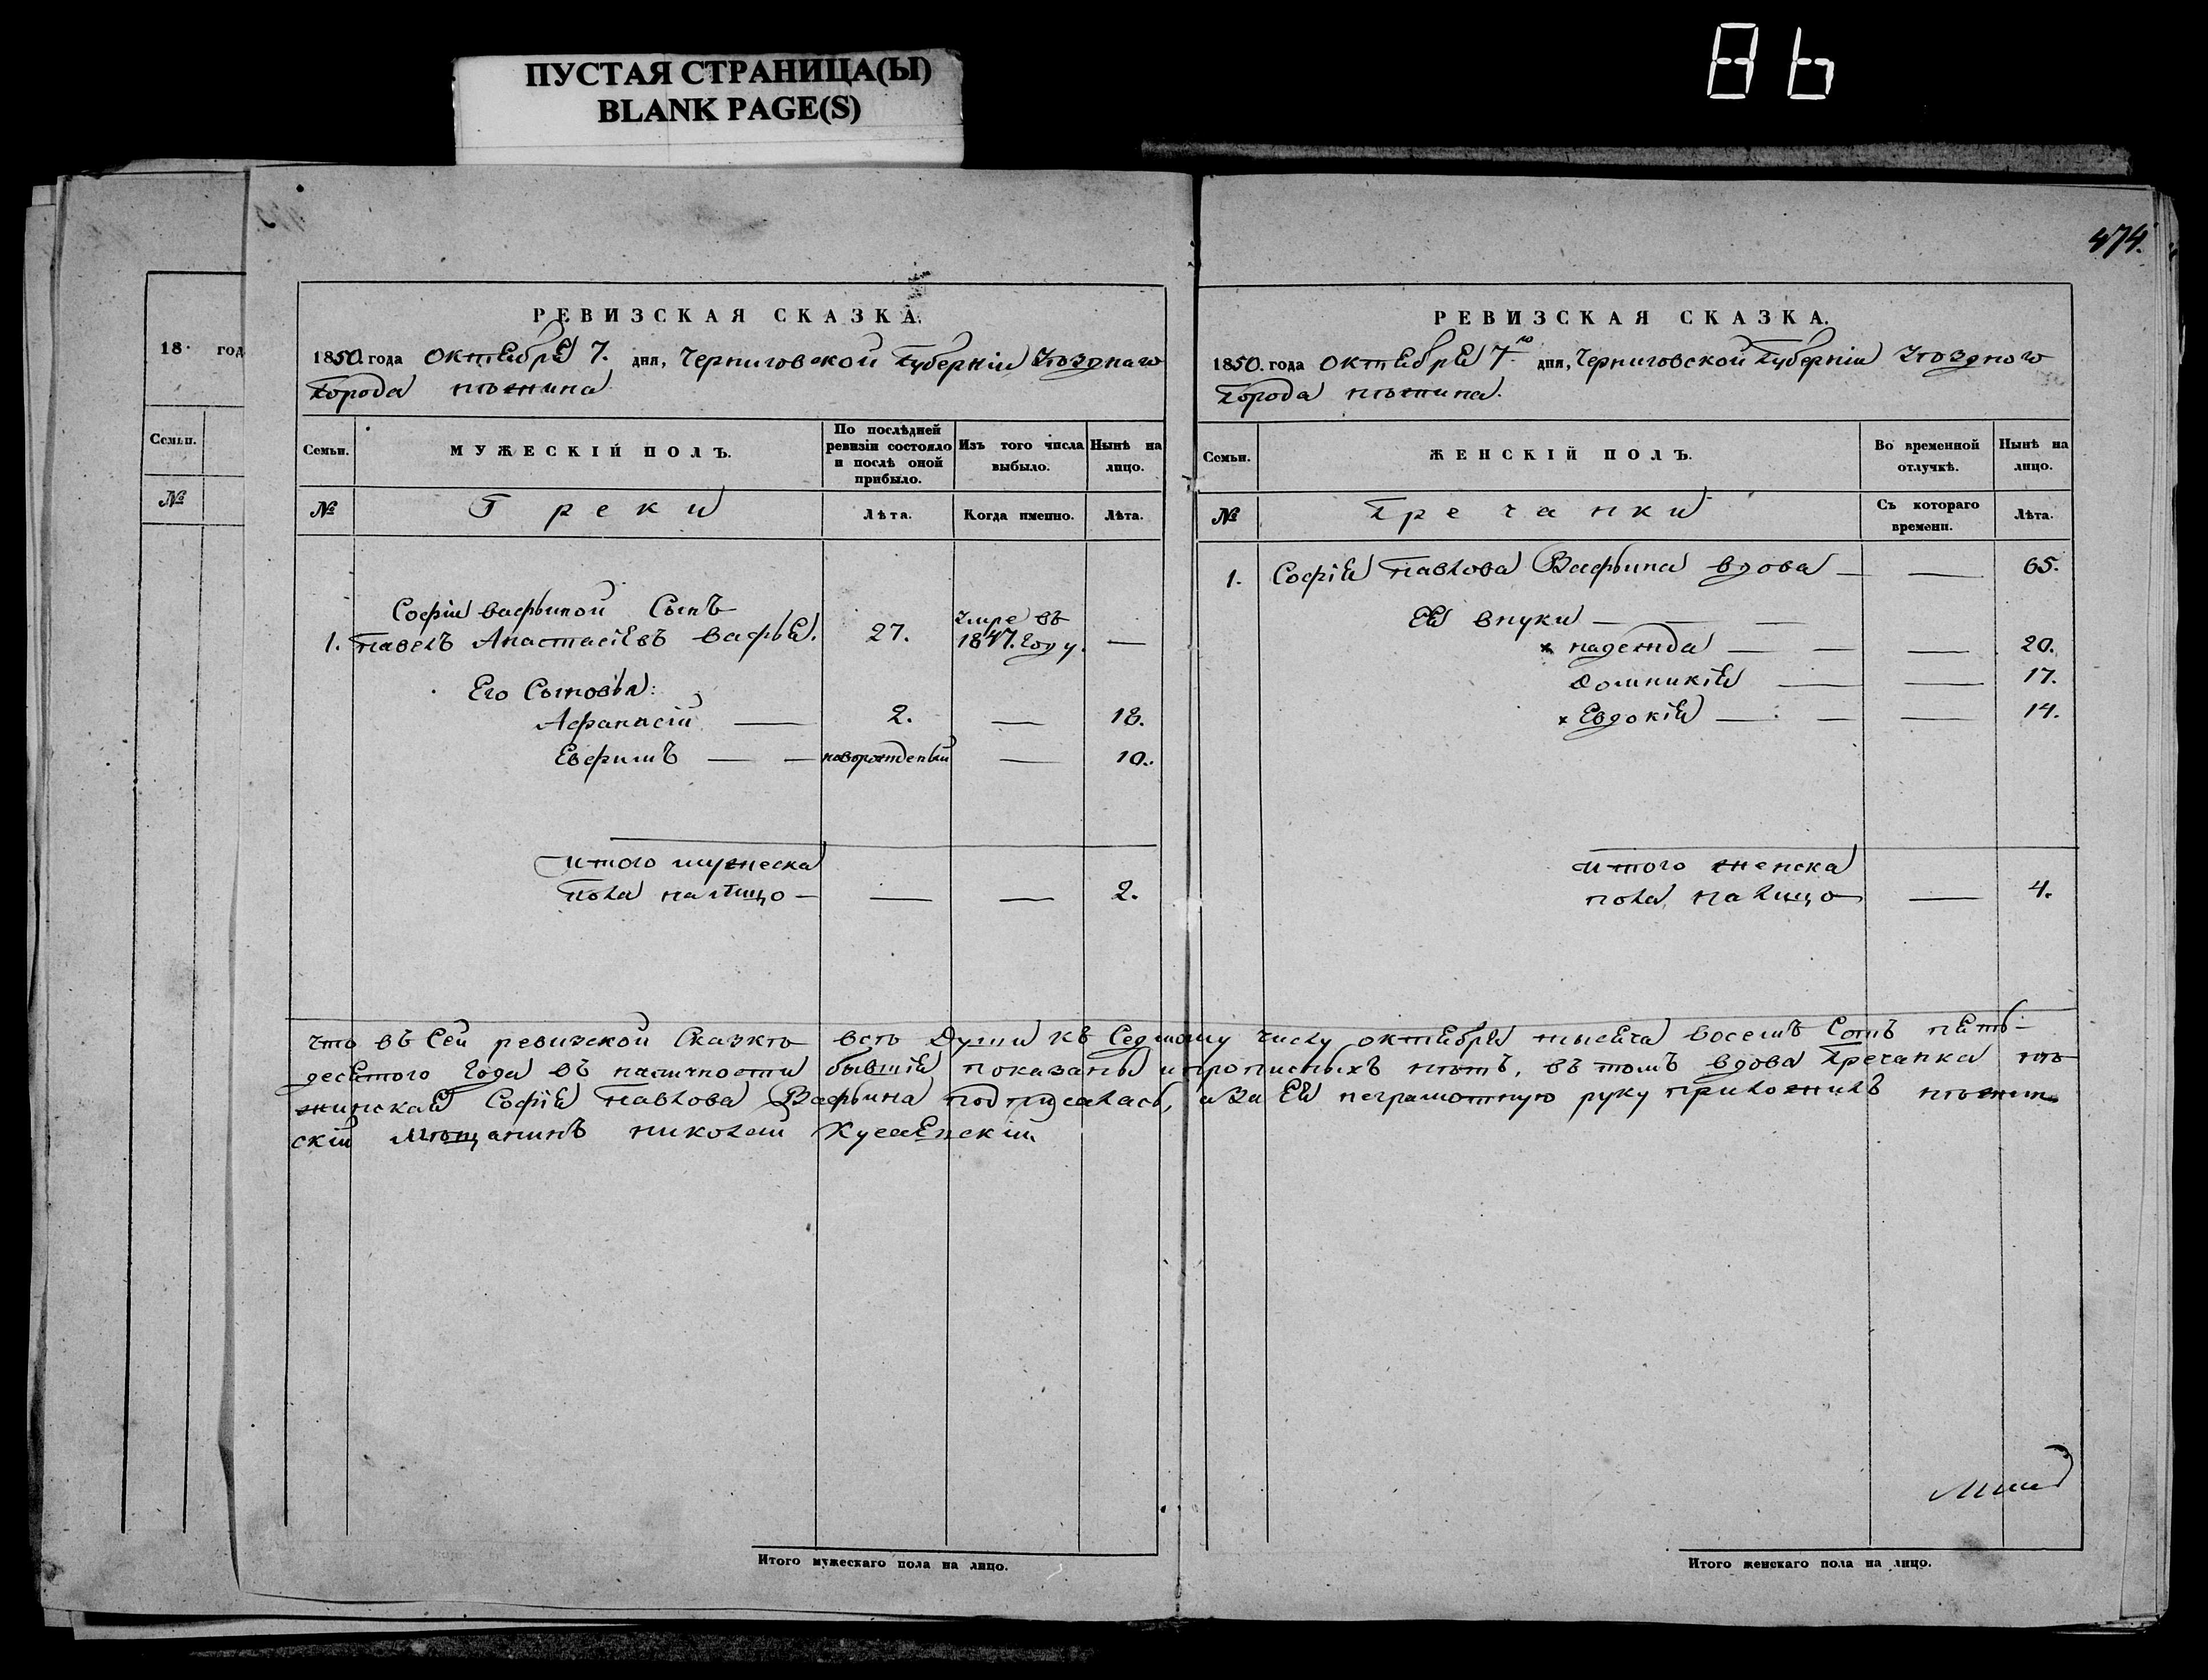 ПУСТАЯ СТРАНИЦА(Ы)
BLANK PAGE(S)
474.
18 год
Семьи.
№
РЕВИЗСКАЯ СКАЗКА.
1850. года октября 7. дня, Черниговской Губерніи Уѣзднаго
Города нѣжина
Семьи.
МУЖЕСКІЙ ПОЛЪ.
По послѣдней ревизіи состояло и послѣ оной прибыло.
Изъ того числа выбыло.
Нынѣ на лицо.
№
Греки
Лѣта.
Когда именно.
Лѣта.
Софіи вафьиной Сынъ
1. павелъ Анастасіевъ вафья. 27. умре въ 1847. году. —
Его Сыновья:
Афанасій — 2. — 18.
Евфимъ — — новорожденый — 10.
итого мужеска
пола налицо — — — 2.
РЕВИЗСКАЯ СКАЗКА.
1850. года октября 7го дня, Черниговской Губерніи Уѣзднаго
Города нѣжина.
Семьи.
ЖЕНСКІЙ ПОЛЪ.
Во временной отлучкѣ.
Нынѣ на лицо.
№
Гречанки
Съ котораго времени.
Лѣта.
1. Софія павлова Вафьина вдова — — 65.
Ея внуки — — —
× надежда — — — 20.
Домникія — — 17.
× Евдокія — — — 14.
итого женска
пола налицо — — 4.
что въ Сей ревизской Сказкѣ всѣ Души къ Седмому числу октября тысяча восемъ Сотъ пять-
десятого Года въ наличности бывшія показаны и прописныхъ нѣтъ, въ томъ вдова Гречанка нѣ-
жинская Софія павлова Вафьина подписалась, а за Ея неграмотную руку приложилъ нѣжин-
скій Мѣщанинъ николай
Итого мужескаго пола на лицо.
Итого женскаго пола на лицо.